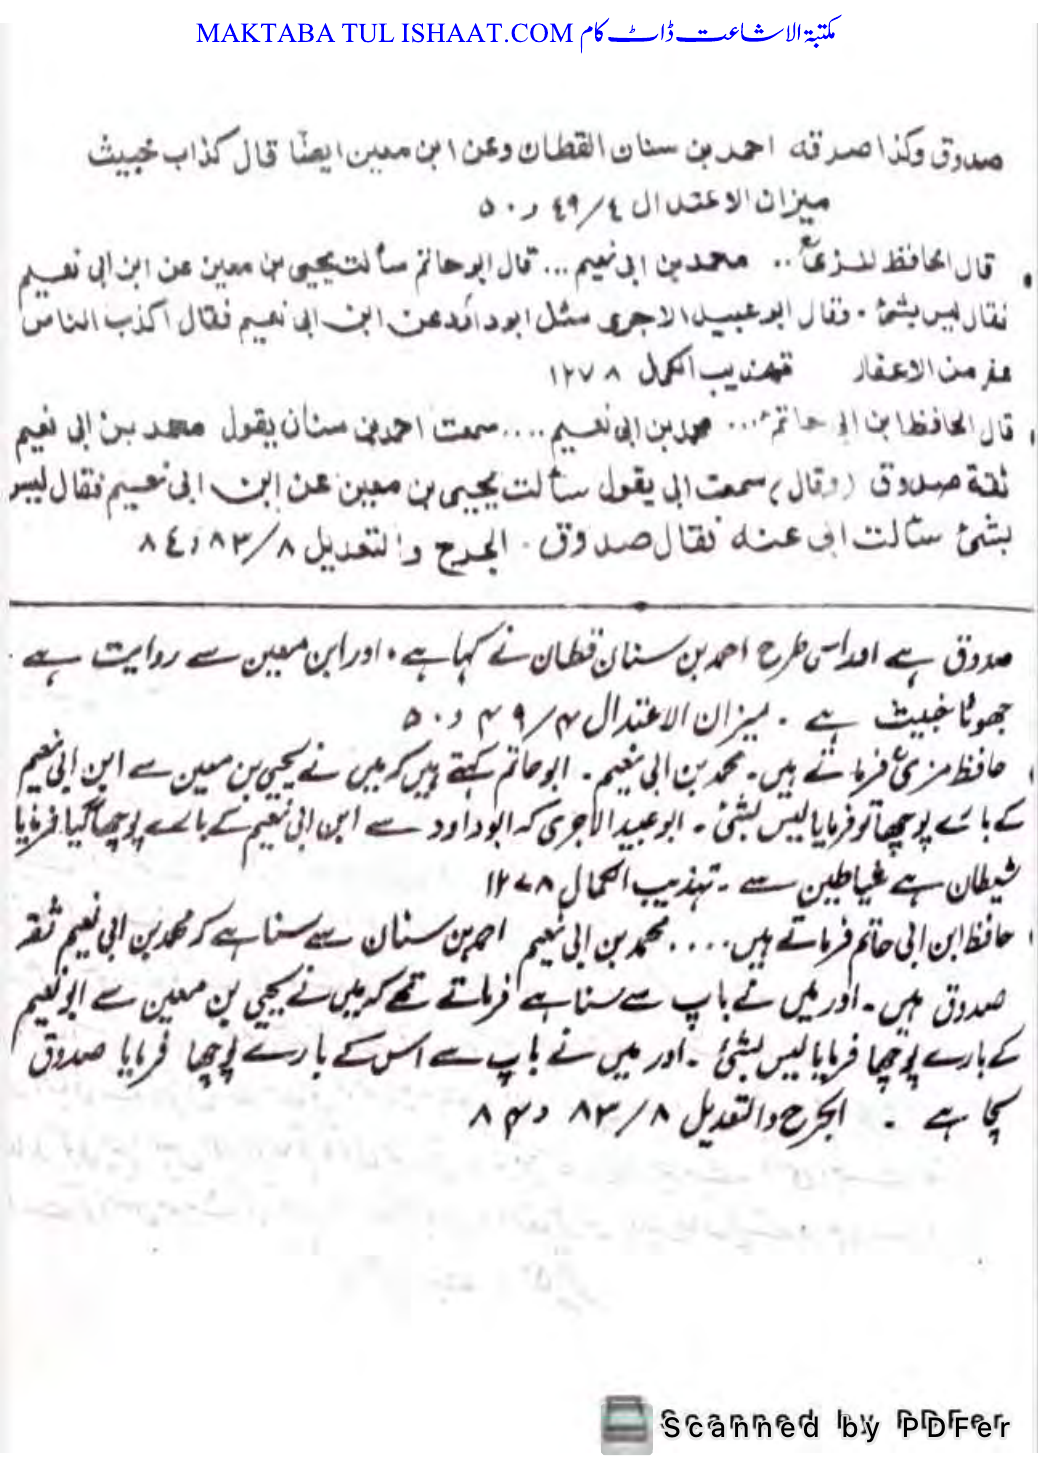 MAKTABA TUL ISHAAT.COM مکتبۃ الاشاعت ڈاٹ کام
صدوق وكذا صدقه احمد بن سنان القطان وعن ابن معين ايضًا قال كذاب خبيث
ميزان الاعتدال ٤/٤٩ و ٥٠
قال الحافظ المزيؒ .. محمد بن ابى نعيم ... قال ابو حاتم سألت يحيى بن معين عن ابن ابى نعيم
فقال ليس بشئ . وقال ابو عبيد الاجرى سئل ابو داؤد عن ابن ابى نعيم فقال اكذب الناس
عفر من الاعفار تهذيب الكمال ١٢٧٨
قال الحافظ ابن ابى حاتمؒ ... محمد بن ابى نعيم .... سمعت احمد بن سنان يقول محمد بن ابى نعيم
ثقة صدوق (وقال) سمعت ابى يقول سألت يحيى بن معين عن ابن ابى نعيم فقال ليس
بشئ سألت ابى عنه فقال صدوق . الجرح والتعديل ٨/٨٣ و ٨٤
صدوق ہے اور اسی طرح احمد بن سنان قطان نے کہا ہے ، اور ابن معین سے روایت ہے
جھوٹا خبیث ہے ۔ میزان الاعتدال ۴/۴۹ و ۵۰
حافظ مزیؒ فرماتے ہیں ۔ محمد بن ابی نعیم ۔ ابو حاتم کہتے ہیں کہ میں نے یحیی بن معین سے ابن ابی نعیم
کے بارے پوچھا تو فرمایا لیس بشئ ۔ ابو عبید الاجری کہ ابو داود سے ابن ابی نعیم کے بارے پوچھا گیا فرمایا
شیطان ہے سے ۔ تہذیب الکمال ۱۲۷۸
حافظ ابن ابی حاتم فرماتے ہیں .... محمد بن ابی نعیم احمد بن سنان سے سنا ہے کہ محمد بن ابی نعیم ثقہ
صدوق ہیں ۔ اور میں نے باپ سے سنا ہے فرماتے تھے کہ میں نے یحیی بن معین سے ابی نعیم
کے بارے پوچھا فرمایا لیس بشئ ۔ اور میں نے باپ سے اس کے بارے پوچھا فرمایا صدوق
سچا ہے ۔ الجرح والتعدیل ۸/۸۳ و ۸۴
Scanned by PDFer